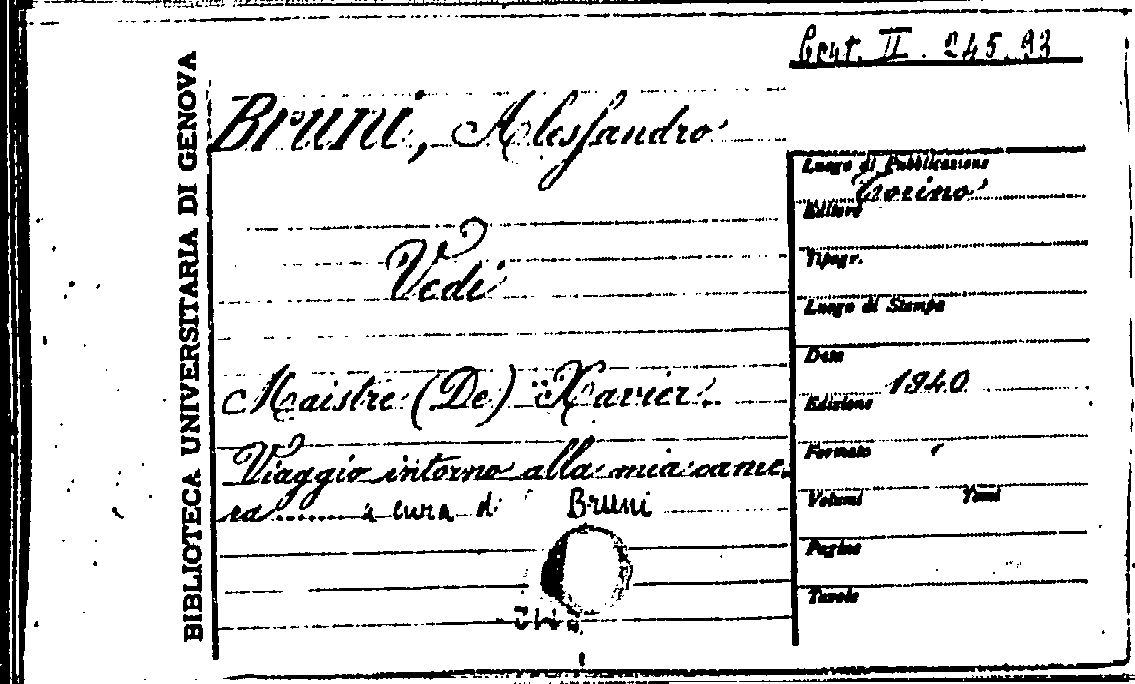 Cent. II. 245.93
BIBLIOTECA UNIVERSITARIA DI GENOVA
Bruni, Alessandro
Vedi
Maistre (De) Xavier.
Viaggio intorno alla mia came
ra ........ a cura di Bruni
Luogo di Pubblicazione
Torino
Editore
Tipogr.
Luogo di Stampa
Data
1940
Edizione
Formato
Volumi Tomi
Pagine
Tavole